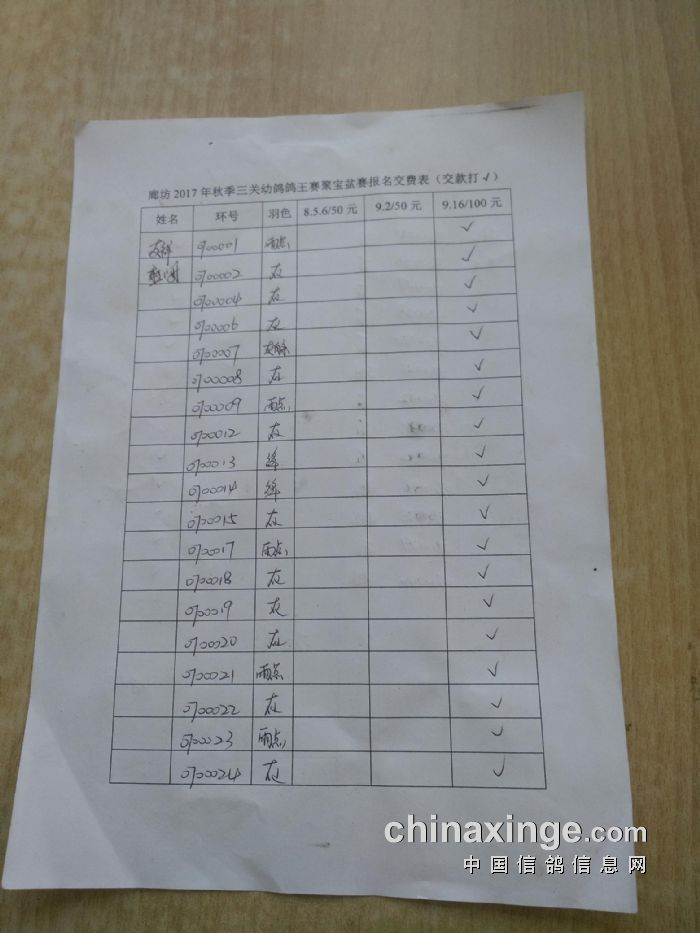 廊坊 2017 年秋季三关幼鸽鸽王赛聚宝盆赛报名交费表（交款打 √）
姓名 环号 羽色 8.5.6/50 元 9.2/50 元 9.16/100 元
0700001 雨点 √
0700002 灰 √
0700004 灰 √
0700006 灰 √
0700007 √
0700008 灰 √
0700009 雨点 √
0700012 灰 √
0700013 绛 √
0700014 绛 √
0700015 灰 √
0700017 雨点 √
0700018 灰 √
0700019 灰 √
0700020 灰 √
0700021 雨点 √
0700022 灰 √
0700023 雨点 √
0700024 灰 √
chinaxinge.com
中国信鸽信息网